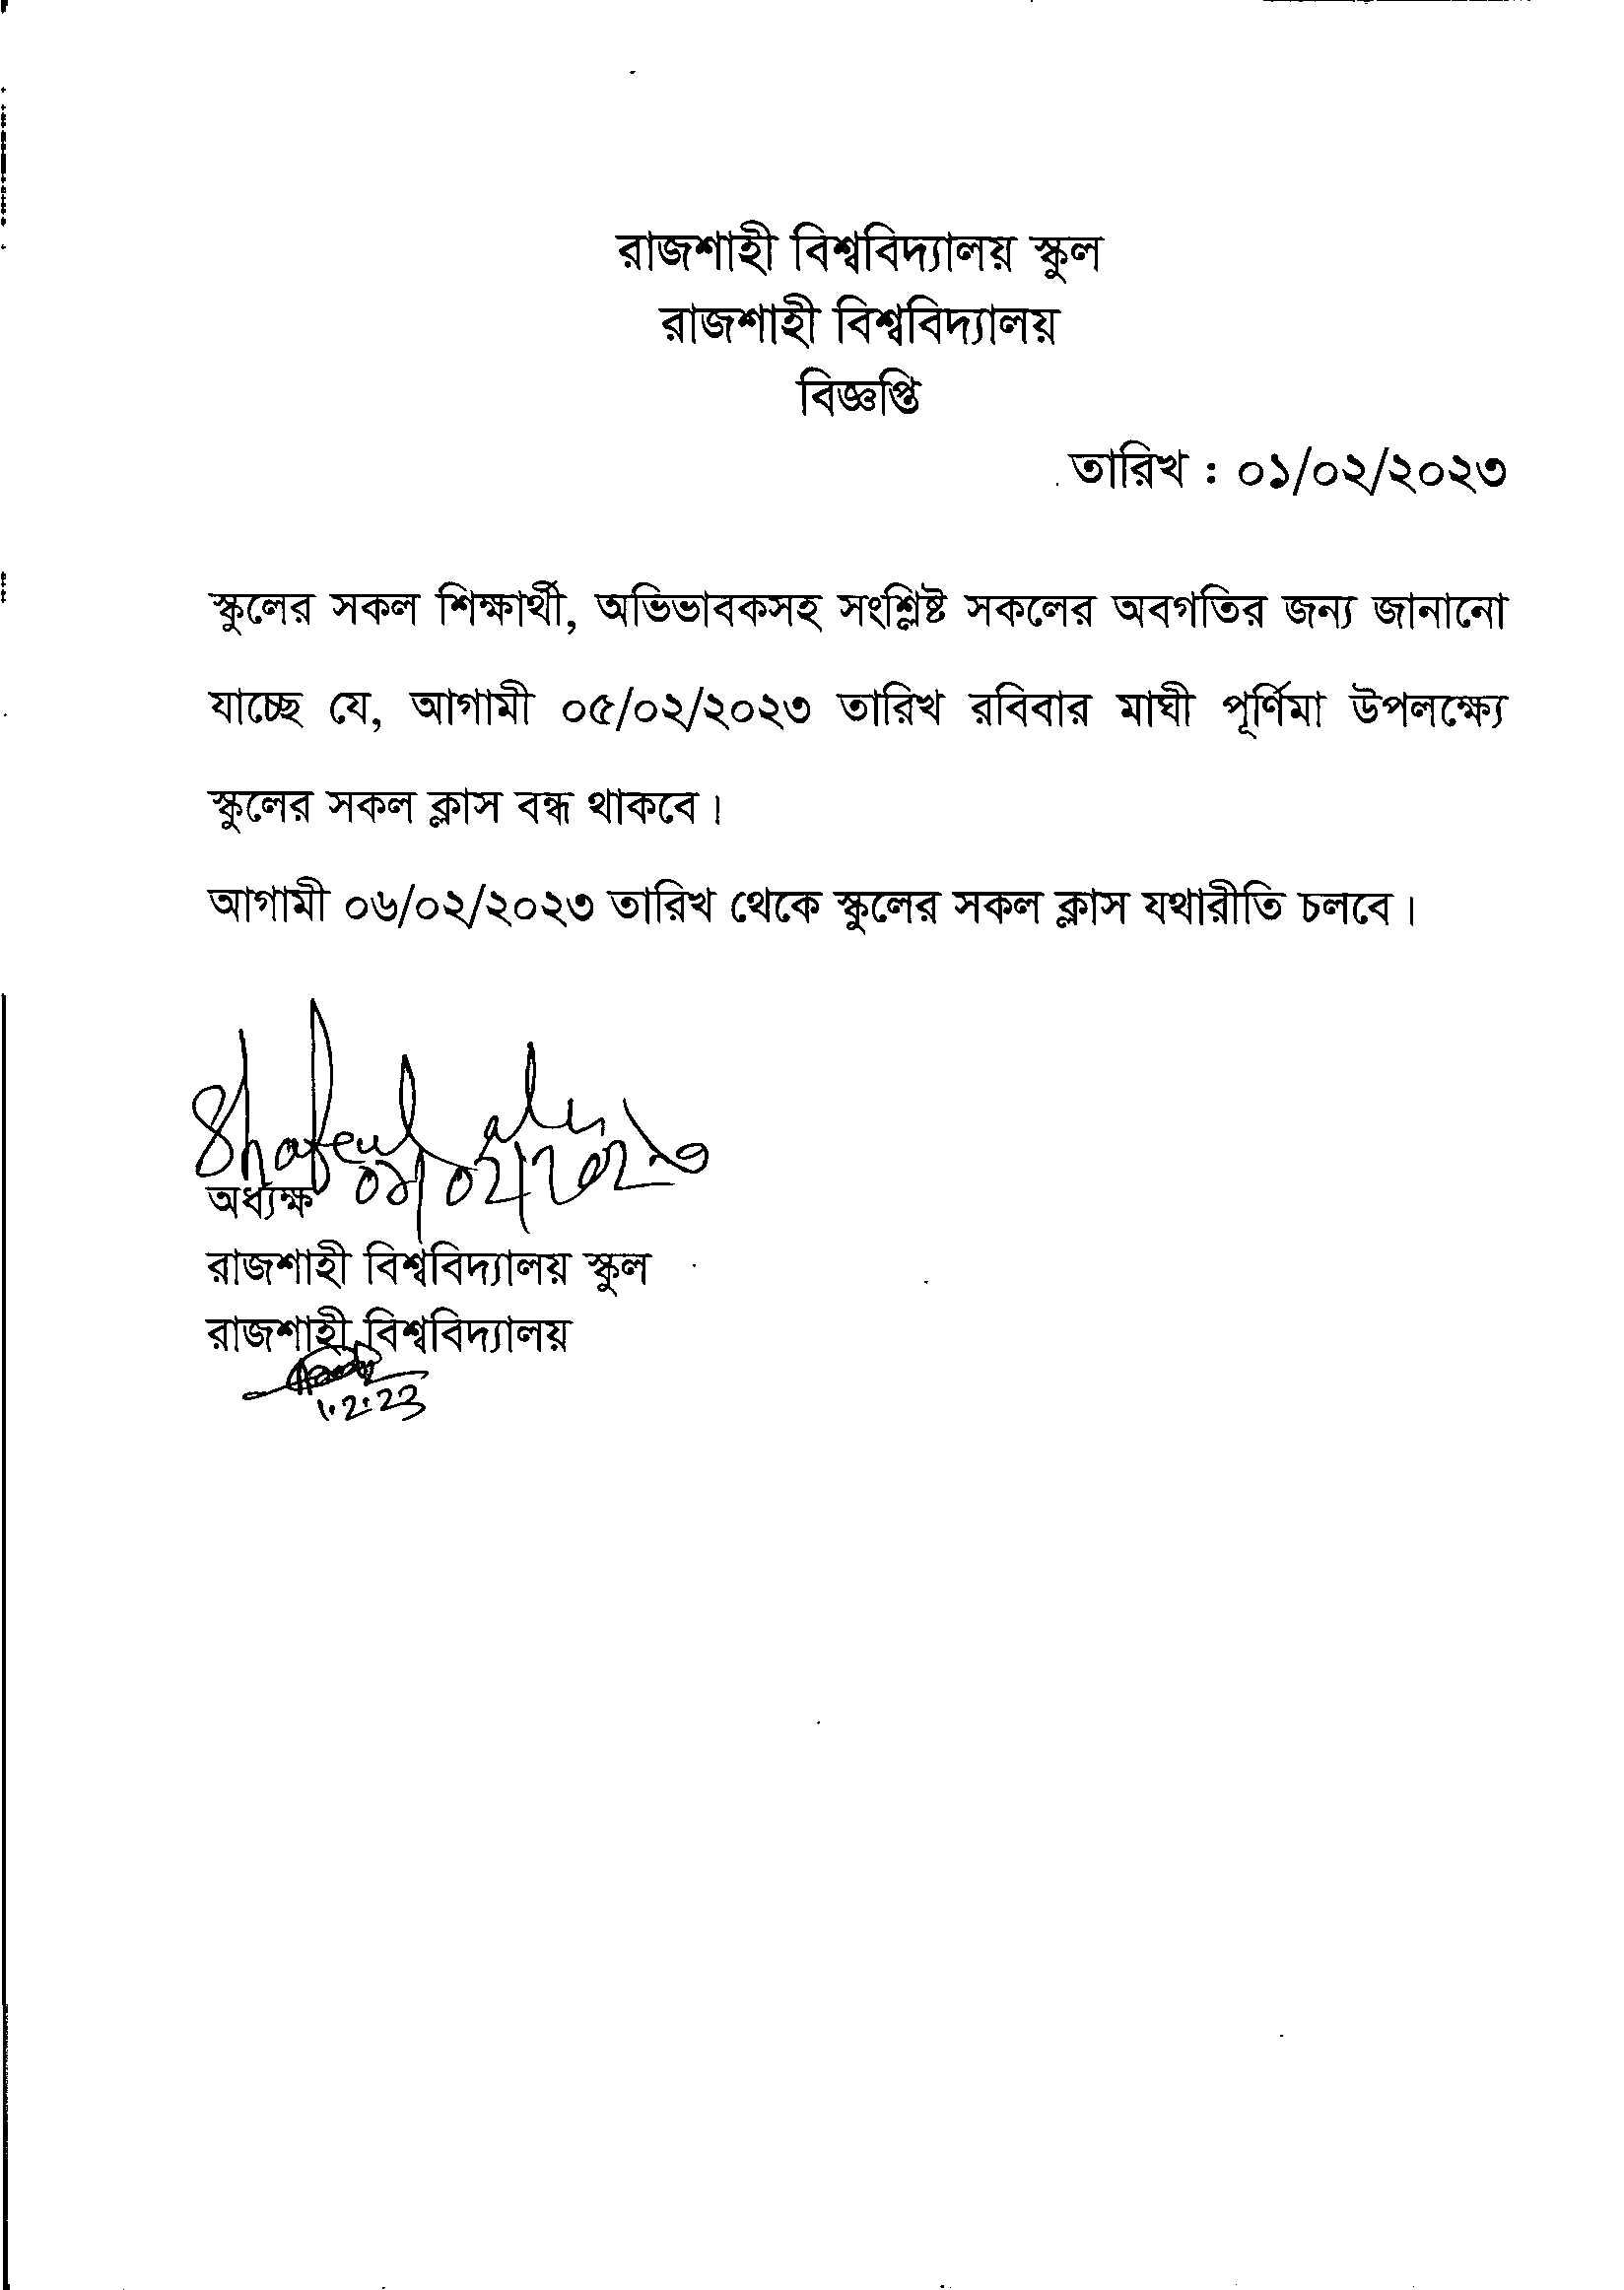 রাজশাহী বিশ্ববিদ্যালয় স্কুল
রাজশাহী বিশ্ববিদ্যালয়
বিজ্ঞপ্তি
তারিখ : ০১/০২/২০২৩
স্কুলের সকল শিক্ষার্থী, অভিভাবকসহ সংশ্লিষ্ট সকলের অবগতির জন্য জানানো
যাচ্ছে যে, আগামী ০৫/০২/২০২৩ তারিখ রবিবার মাঘী পূর্ণিমা উপলক্ষ্যে
স্কুলের সকল ক্লাস বন্ধ থাকবে।
আগামী ০৬/০২/২০২৩ তারিখ থেকে স্কুলের সকল ক্লাস যথারীতি চলবে।
০১/০২/২০২৩
অধ্যক্ষ
রাজশাহী বিশ্ববিদ্যালয় স্কুল
রাজশাহী বিশ্ববিদ্যালয়
1.2.23